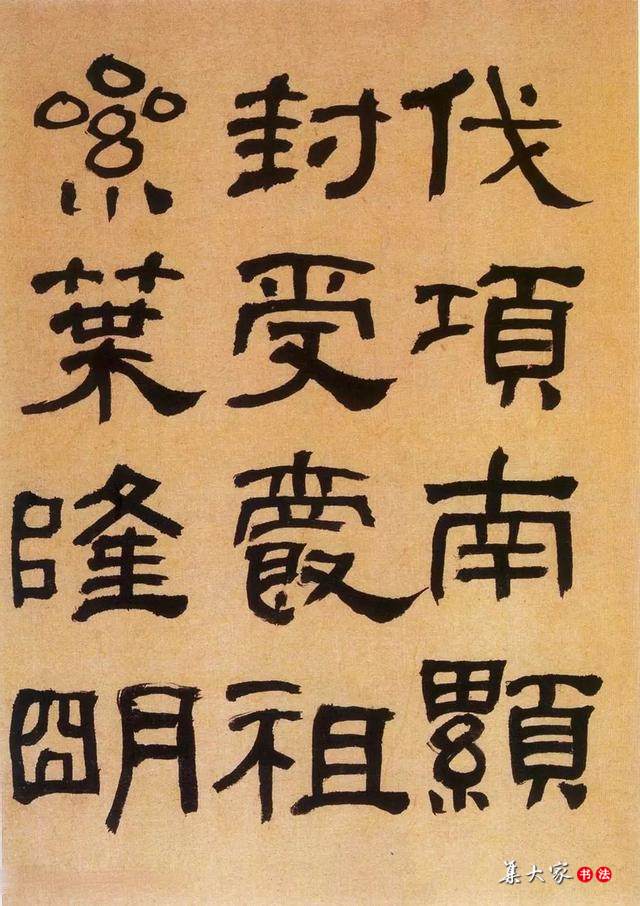 伐項南顯
封受祖
累葉隆朙
集大家书法